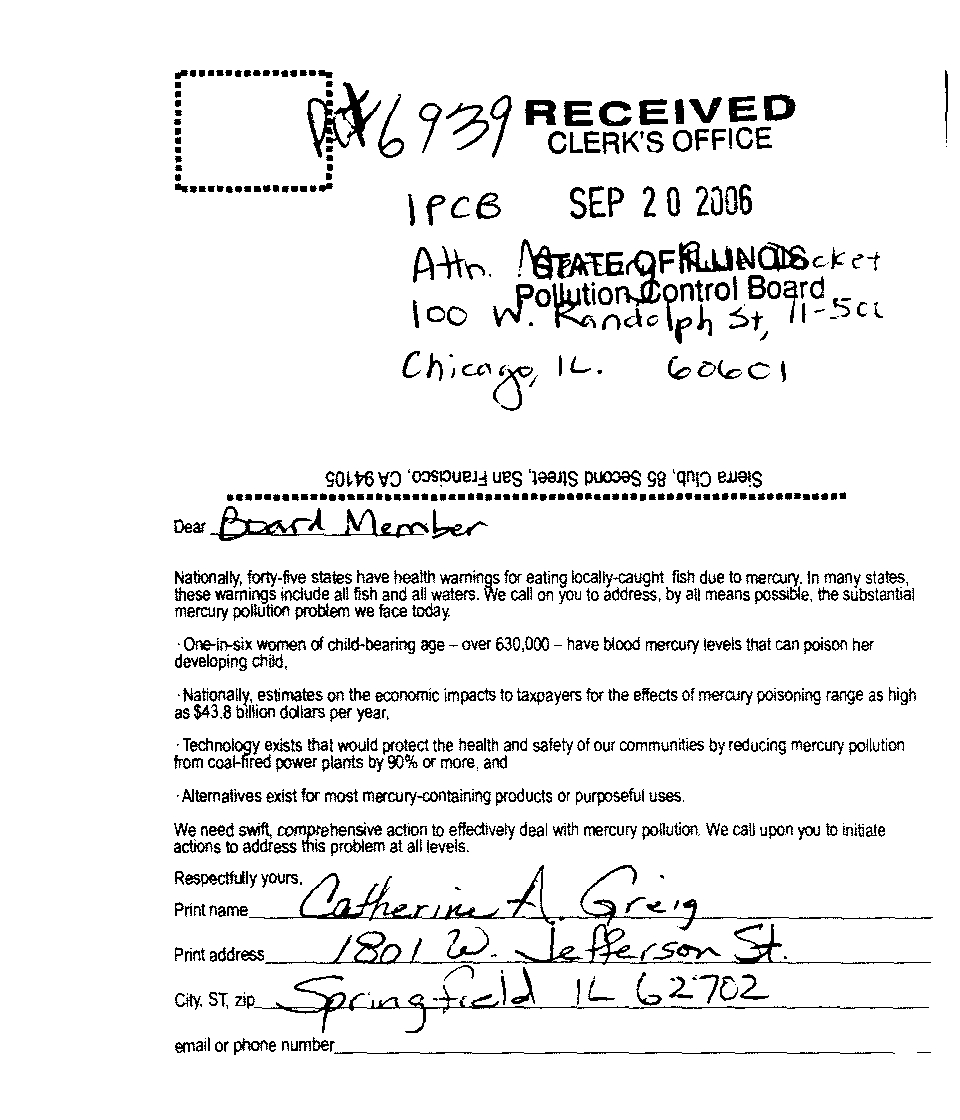 PC# 6939 RECEIVED
CLERK'S OFFICE
IPCB SEP 20 2006
Attn. STATE OF ILLINOIS Docket
Pollution Control Board
100 W. Randolph St, 11-500
Chicago, IL. 60601
Sierra Club, 85 Second Street, San Francisco, CA 94105
Dear Board Member
Nationally, forty-five states have health warnings for eating locally-caught fish due to mercury. In many states,
these warnings include all fish and all waters. We call on you to address, by all means possible, the substantial
mercury pollution problem we face today.
· One-in-six women of child-bearing age – over 630,000 – have blood mercury levels that can poison her
developing child,
· Nationally, estimates on the economic impacts to taxpayers for the effects of mercury poisoning range as high
as $43.8 billion dollars per year,
· Technology exists that would protect the health and safety of our communities by reducing mercury pollution
from coal-fired power plants by 90% or more, and
· Alternatives exist for most mercury-containing products or purposeful uses.
We need swift, comprehensive action to effectively deal with mercury pollution. We call upon you to initiate
actions to address this problem at all levels.
Respectfully yours,
Print name Catherine A. Greig
Print address 1801 W. Jefferson St.
City, ST, zip Springfield IL 62702
email or phone number